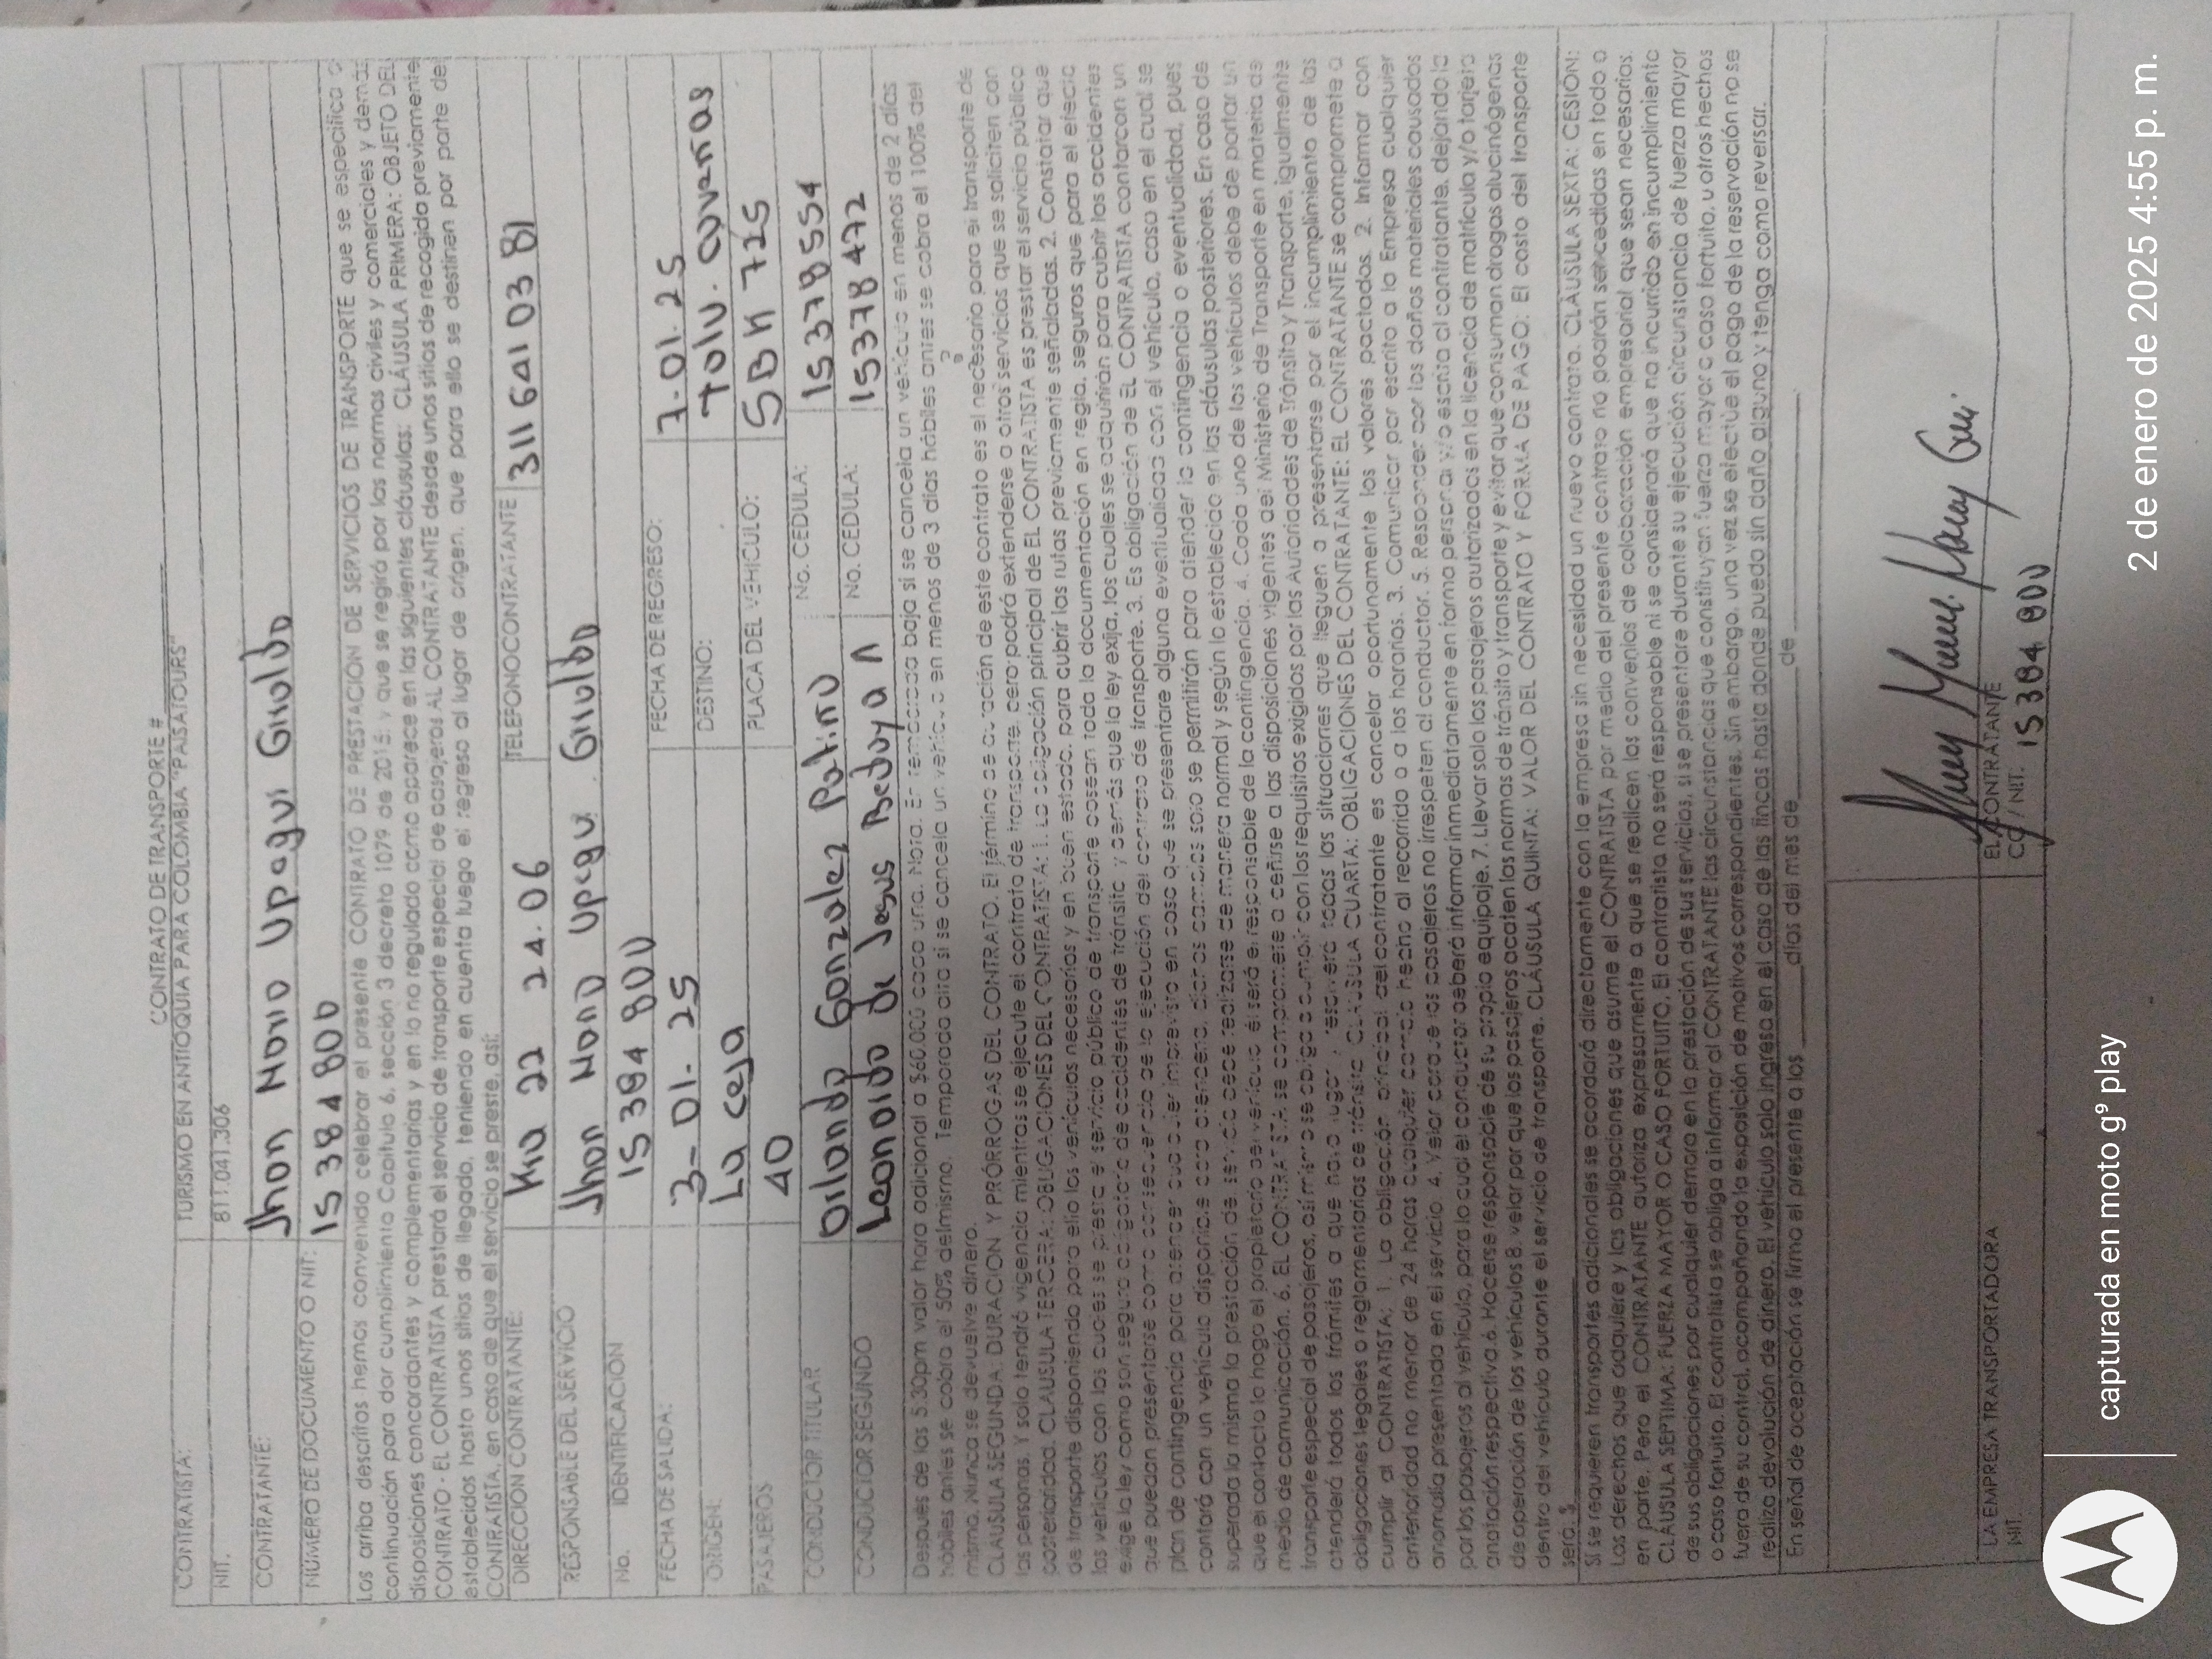 CONTRATO DE TRANSPORTE #
CONTRATISTA: TURISMO EN ANTIOQUIA PARA COLOMBIA "PAISATOURS"
NIT. 811.041.306
CONTRATANTE: Jhon Upegui Giraldo
NÚMERO DE DOCUMENTO O NIT: 15 384 800
Los arriba descritos hemos convenido celebrar el presente CONTRATO DE PRESTACIÓN DE SERVICIOS DE TRANSPORTE que se especifica a
continuación para dar cumplimiento Capitulo 6, sección 3 decreto 1079 de 2015; y que se regirá por las normas civiles y comerciales y demás
disposiciones concordantes y complementarias y en lo no regulado como aparece en las siguientes cláusulas: CLÁUSULA PRIMERA: OBJETO DEL
CONTRATO - EL CONTRATISTA prestará el servicio de transporte especial de pasajeros AL CONTRATANTE desde unos sitios de recogida previamente
establecidos hasta unos sitios de llegada, teniendo en cuenta luego el regreso al lugar de origen, que para ello se destinen por parte del
CONTRATISTA, en caso de que el servicio se preste, así:
DIRECCION CONTRATANTE: Kra 22 24.06 TELEFONO CONTRATANTE 311 641 03 81
RESPONSABLE DEL SERVICIO Jhon Upegui Giraldo
No. IDENTIFICACION 15 384 800
FECHA DE SALIDA: 3-01.25 FECHA DE REGRESO: 7.01.25
ORIGEN: La ceja DESTINO: Tolu. coveñas
PASAJEROS 40 PLACA DEL VEHICULO: 725
CONDUCTOR TITULAR Orlando Gonzalez Patiño No. CEDULA: 15378554
CONDUCTOR SEGUNDO Leonardo de Jesus Bedoya No. CEDULA: 15378472
Después de las 5:30pm valor hora adicional a $60.000 cada una. Nota. En temporada baja si se cancela un vehículo en menos de 2 días
hábiles antes se cobra el 50% del mismo. Temporada alta si se cancela un vehículo en menos de 3 días hábiles antes se cobra el 100% del
mismo. Nunca se devuelve dinero.
CLAUSULA SEGUNDA: DURACION Y PRÓRROGAS DEL CONTRATO. El término de duración de este contrato es el necesario para el transporte de
las personas. Y solo tendrá vigencia mientras se ejecute el contrato de transporte, pero podrá extenderse a otros servicios que se soliciten con
posterioridad. CLAUSULA TERCERA: OBLIGACIONES DEL CONTRATISTA: 1. La obligación principal de EL CONTRATISTA es prestar el servicio público
de transporte disponiendo para ello los vehículos necesarios y en buen estado, para cubrir las rutas previamente señaladas. 2. Constatar que
los vehículos con los cuales se presta el servicio público de transporte posean toda la documentación en regla, seguros que para el efecto
exige la ley como son seguro obligatorio de accidentes de tránsito y demás que la ley exija, los cuales se adquirirán para cubrir los accidentes
que puedan presentarse como consecuencia de la ejecución del contrato de transporte. 3. Es obligación de EL CONTRATISTA contar con un
plan de contingencia para atender cualquier imprevisto en caso que se presentare alguna eventualidad con el vehículo, caso en el cual se
contará con un vehículo disponible para atenderlo, dichos cambios solo se permitirán para atender la contingencia o eventualidad, pues
superada la misma la prestación de servicio debe realizarse de manera normal y según lo establecido en las cláusulas posteriores. En caso de
que el contacto lo haga el propietario del vehículo él será el responsable de la contingencia. 4. Cada uno de los vehículos debe de portar un
medio de comunicación. 6. EL CONTRATISTA se compromete a ceñirse a las disposiciones vigentes del Ministerio de Transporte en materia de
transporte especial de pasajeros, así mismo se obliga a cumplir con los requisitos exigidos por las Autoridades de Tránsito y Transporte, igualmente
atenderá todos los trámites a que haya lugar y resolverá todas las situaciones que lleguen a presentarse por el incumplimiento de las
obligaciones legales o reglamentarias de tránsito CLAUSULA CUARTA: OBLIGACIONES DEL CONTRATANTE: EL CONTRATANTE se compromete a
cumplir al CONTRATISTA: 1. La obligación principal del contratante es cancelar oportunamente los valores pactados. 2. Informar con
anterioridad no menor de 24 horas cualquier cambio hecho al recorrido o a los horarios. 3. Comunicar por escrito a la Empresa cualquier
anomalía presentada en el servicio. 4. Velar porque los pasajeros no irrespeten al conductor. 5. Responder por los daños materiales causados
por los pasajeros al vehículo, para lo cual el conductor deberá informar inmediatamente en forma personal y/o escrita al contratante, dejando la
anotación respectiva. 6. Hacerse responsable de su propio equipaje. 7. Llevar solo los pasajeros autorizados en la licencia de matrícula y/o tarjeta
de operación de los vehículos 8. velar por que los pasajeros acaten las normas de tránsito y transporte y evitar que consuman drogas alucinógenas
dentro del vehículo durante el servicio de transporte. CLÁUSULA QUINTA: VALOR DEL CONTRATO Y FORMA DE PAGO: El costo del transporte
será: $
Si se requieren transportes adicionales se acordará directamente con la empresa sin necesidad un nuevo contrato. CLÁUSULA SEXTA: CESIÓN:
Los derechos que adquiere y las obligaciones que asume el CONTRATISTA por medio del presente contrato no podrán ser cedidas en todo o
en parte. Pero el CONTRATANTE autoriza expresamente a que se realicen los convenios de colaboración empresarial que sean necesarios.
CLÁUSULA SEPTIMA: FUERZA MAYOR O CASO FORTUITO. El contratista no será responsable ni se considerará que no incurrido en incumplimiento
de sus obligaciones por cualquier demora en la prestación de sus servicios, si se presentare durante su ejecución circunstancia de fuerza mayor
o caso fortuito. El contratista se obliga a informar al CONTRATANTE las circunstancias que constituyan fuerza mayor o caso fortuito, u otros hechos
fuera de su control, acompañando la exposición de motivos correspondientes. Sin embargo, una vez se efectúe el pago de la reservación no se
realiza devolución de dinero. El vehículo solo ingresa en el caso de las fincas hasta donde pueda sin daño alguno y tenga como reversar.
En señal de aceptación se firma el presente a los ____ días del mes de ____ de ____.
LA EMPRESA TRANSPORTADORA EL CONTRATANTE
NIT. CC / NIT. 15 384 800
capturada en moto g⁹ play
2 de enero de 2025 4:55 p. m.